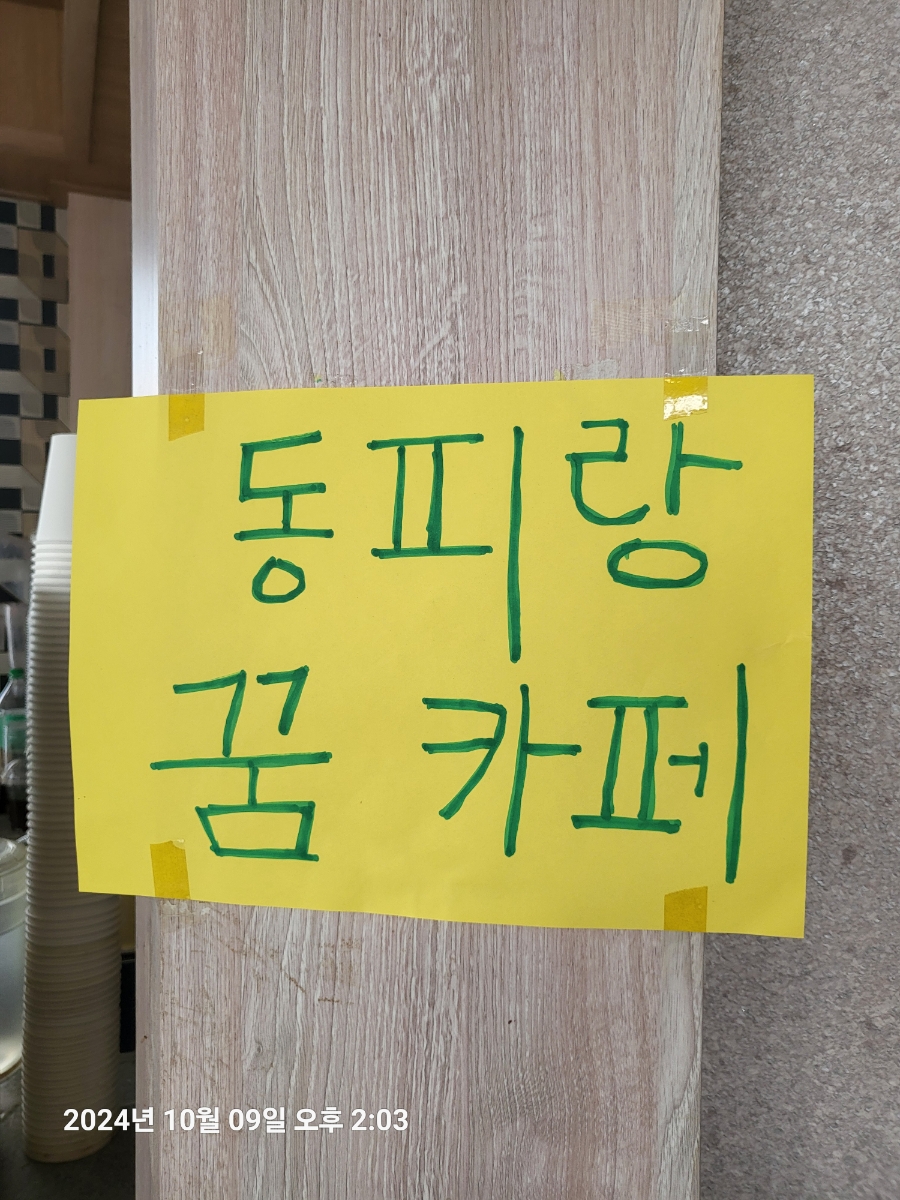 동피랑
꿈 카페
2024년 10월 09일 오후 2:03